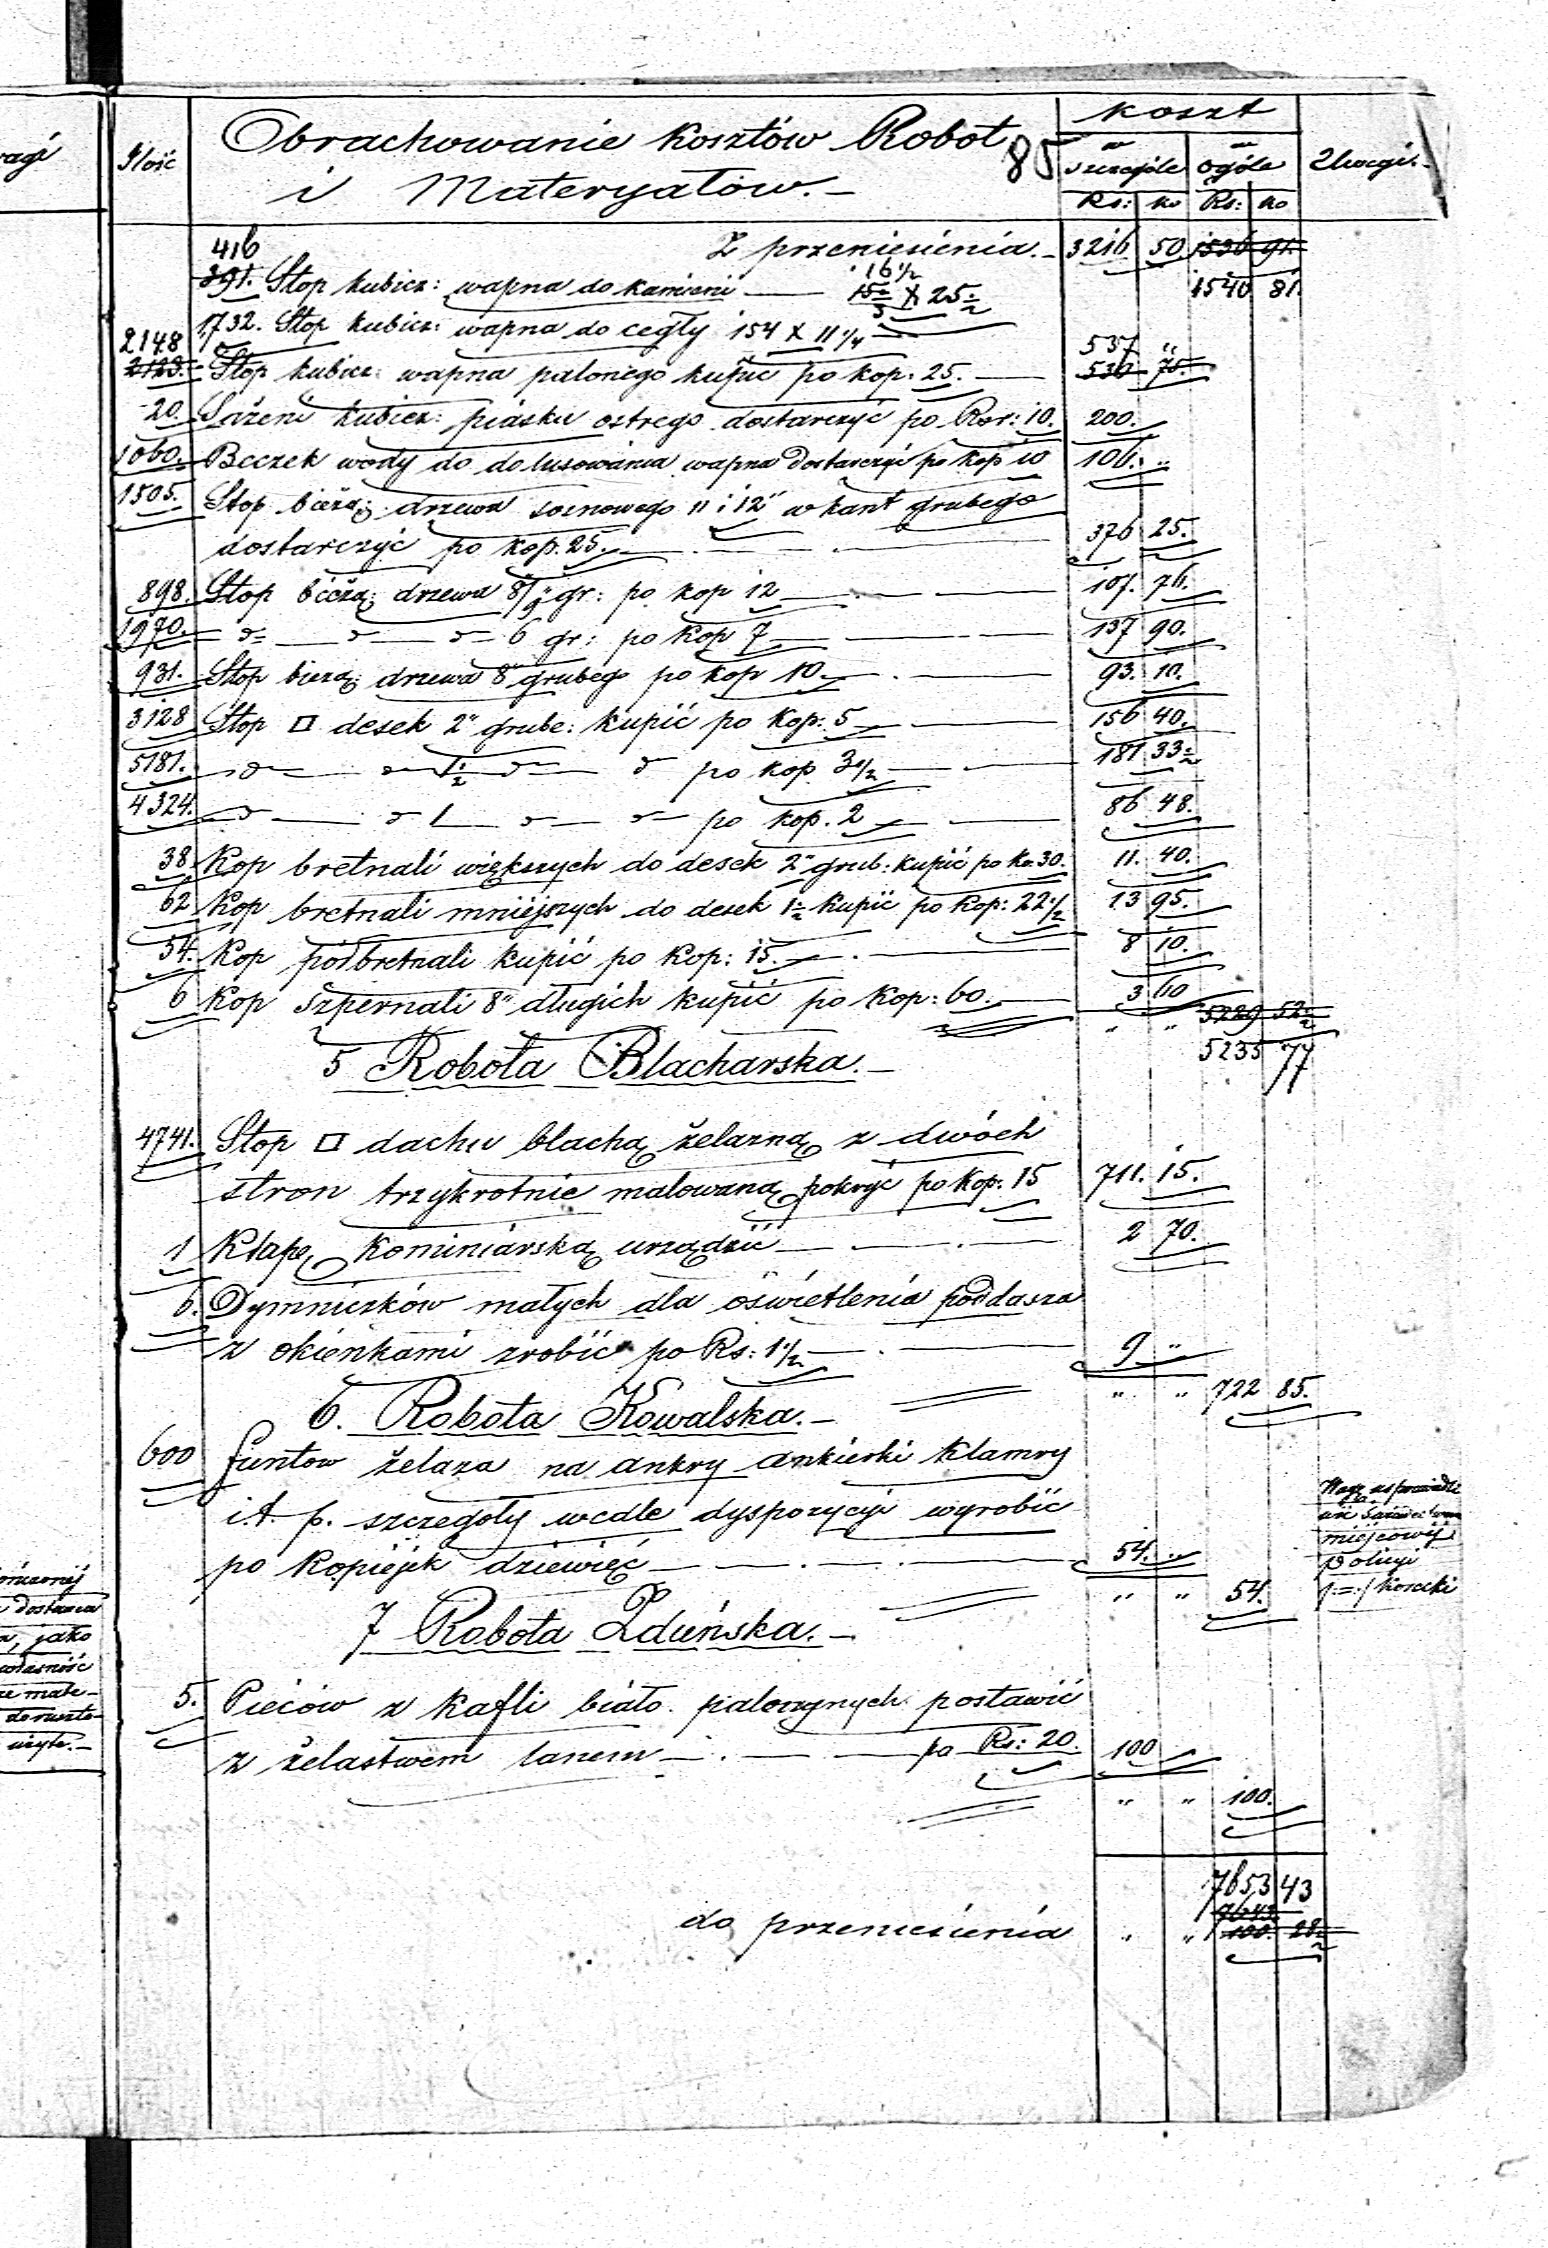 Ilość
Obrachowanie kosztów Robot
i Materyałów.
85
koszt
w szczególe
w ogóle
Uwagi.
Rs: ko Rs: ko
Z przeniesienia. 3216 50 1536 91.
1540 81.
416
391. Stop kubicz: wapna do kamieni 16 1/2 15 1/2 X 25 1/2
1732. Stop kubicz: wapna do cegły 154 X 11 1/4
2148 537 "
2123. Stop kubicz: wapna palonego kupić po kop: 25. 530 75.
20. Sążeni kubicz: piasku ostrego dostarczyć po Rsr: 10. 200.
1060. Beczek wody do dolusowania wapna dostarczyć po kop 10 106. "
1505. Stop bieżą: drzewa sosnowego 11 i 12" w kant grubego
dostarczyć po kop. 25. 376 25.
898. Stop bieżą: drzewa 8/9" gr: po kop 12 107. 76.
1970. d d d 6 gr: po kop 7 137 90.
931. Stop bieżą: drzewa 8" grubego po kop 10 93. 10.
3128 Stop □ desek 2" grube: kupić po kop: 5 156 40.
5181. d d 1 1/2 d d po kop 3 1/2 181 33 1/2
4324. d d 1 d d po kop. 2 86 48.
38. Kop bretnali większych do desek 2" grub: kupić po ko 30. 11. 40.
62 Kop bretnali mniejszych do desek 1 1/2 kupić po kop: 22 1/2 13 95.
54. Kop półbretnali kupić po kop: 15. 8 10.
6 Kop szpernali 8" długich kupić po kop: 60. 3 60
" " 5229 52 1/2
5235 77
5 Robota Blacharska.
4741. Stop □ dachu blachą żelazną z dwóch
stron trzykrotnie malowaną pokryć po kop: 15 711. 15.
1 Klapę kominiarską urządzić 2 70.
6. Dymniczków małych dla oświetlenia poddasza
z okienkami zrobić po Rs: 1 1/2 9 "
" " 722 85.
6. Robota Kowalska.
600 funtow żelaza na ankry ankierki klamry
i.t.p. szczegoły wedle dyspozycyi wyrobić
po kopiejek dziewięć 54. "
" " 54.
miejscowej
Policyi
7 Robota Zduńska.
5. Pieców z kafli biało palonych postawić
z żelastwem lanem po Rs: 20. 100
" " 100.
7653 43
do przeniesienia " "